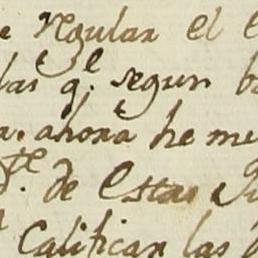 regular el
las q.e segun
ahora he me
de Estas
Calificar las